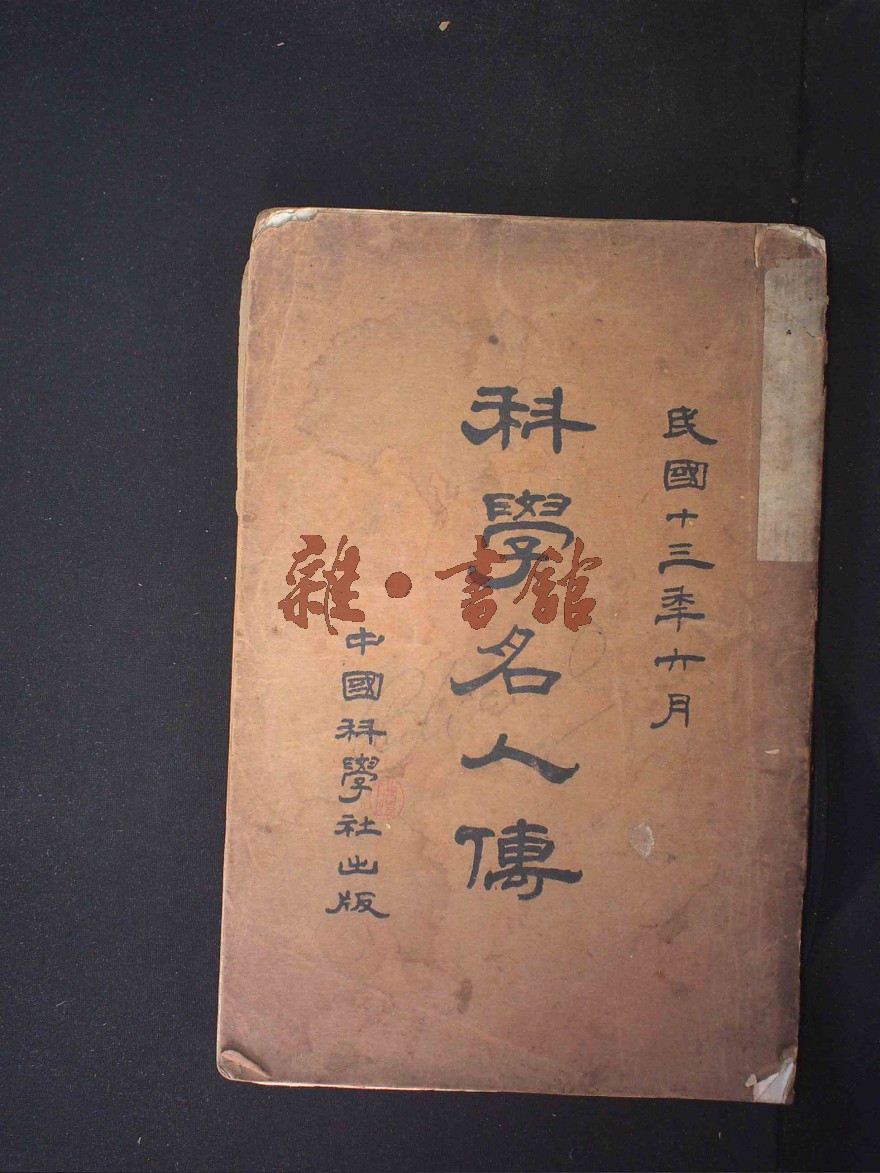 民國十三年六月
科學名人傳
中國科學社出版
雜·書館